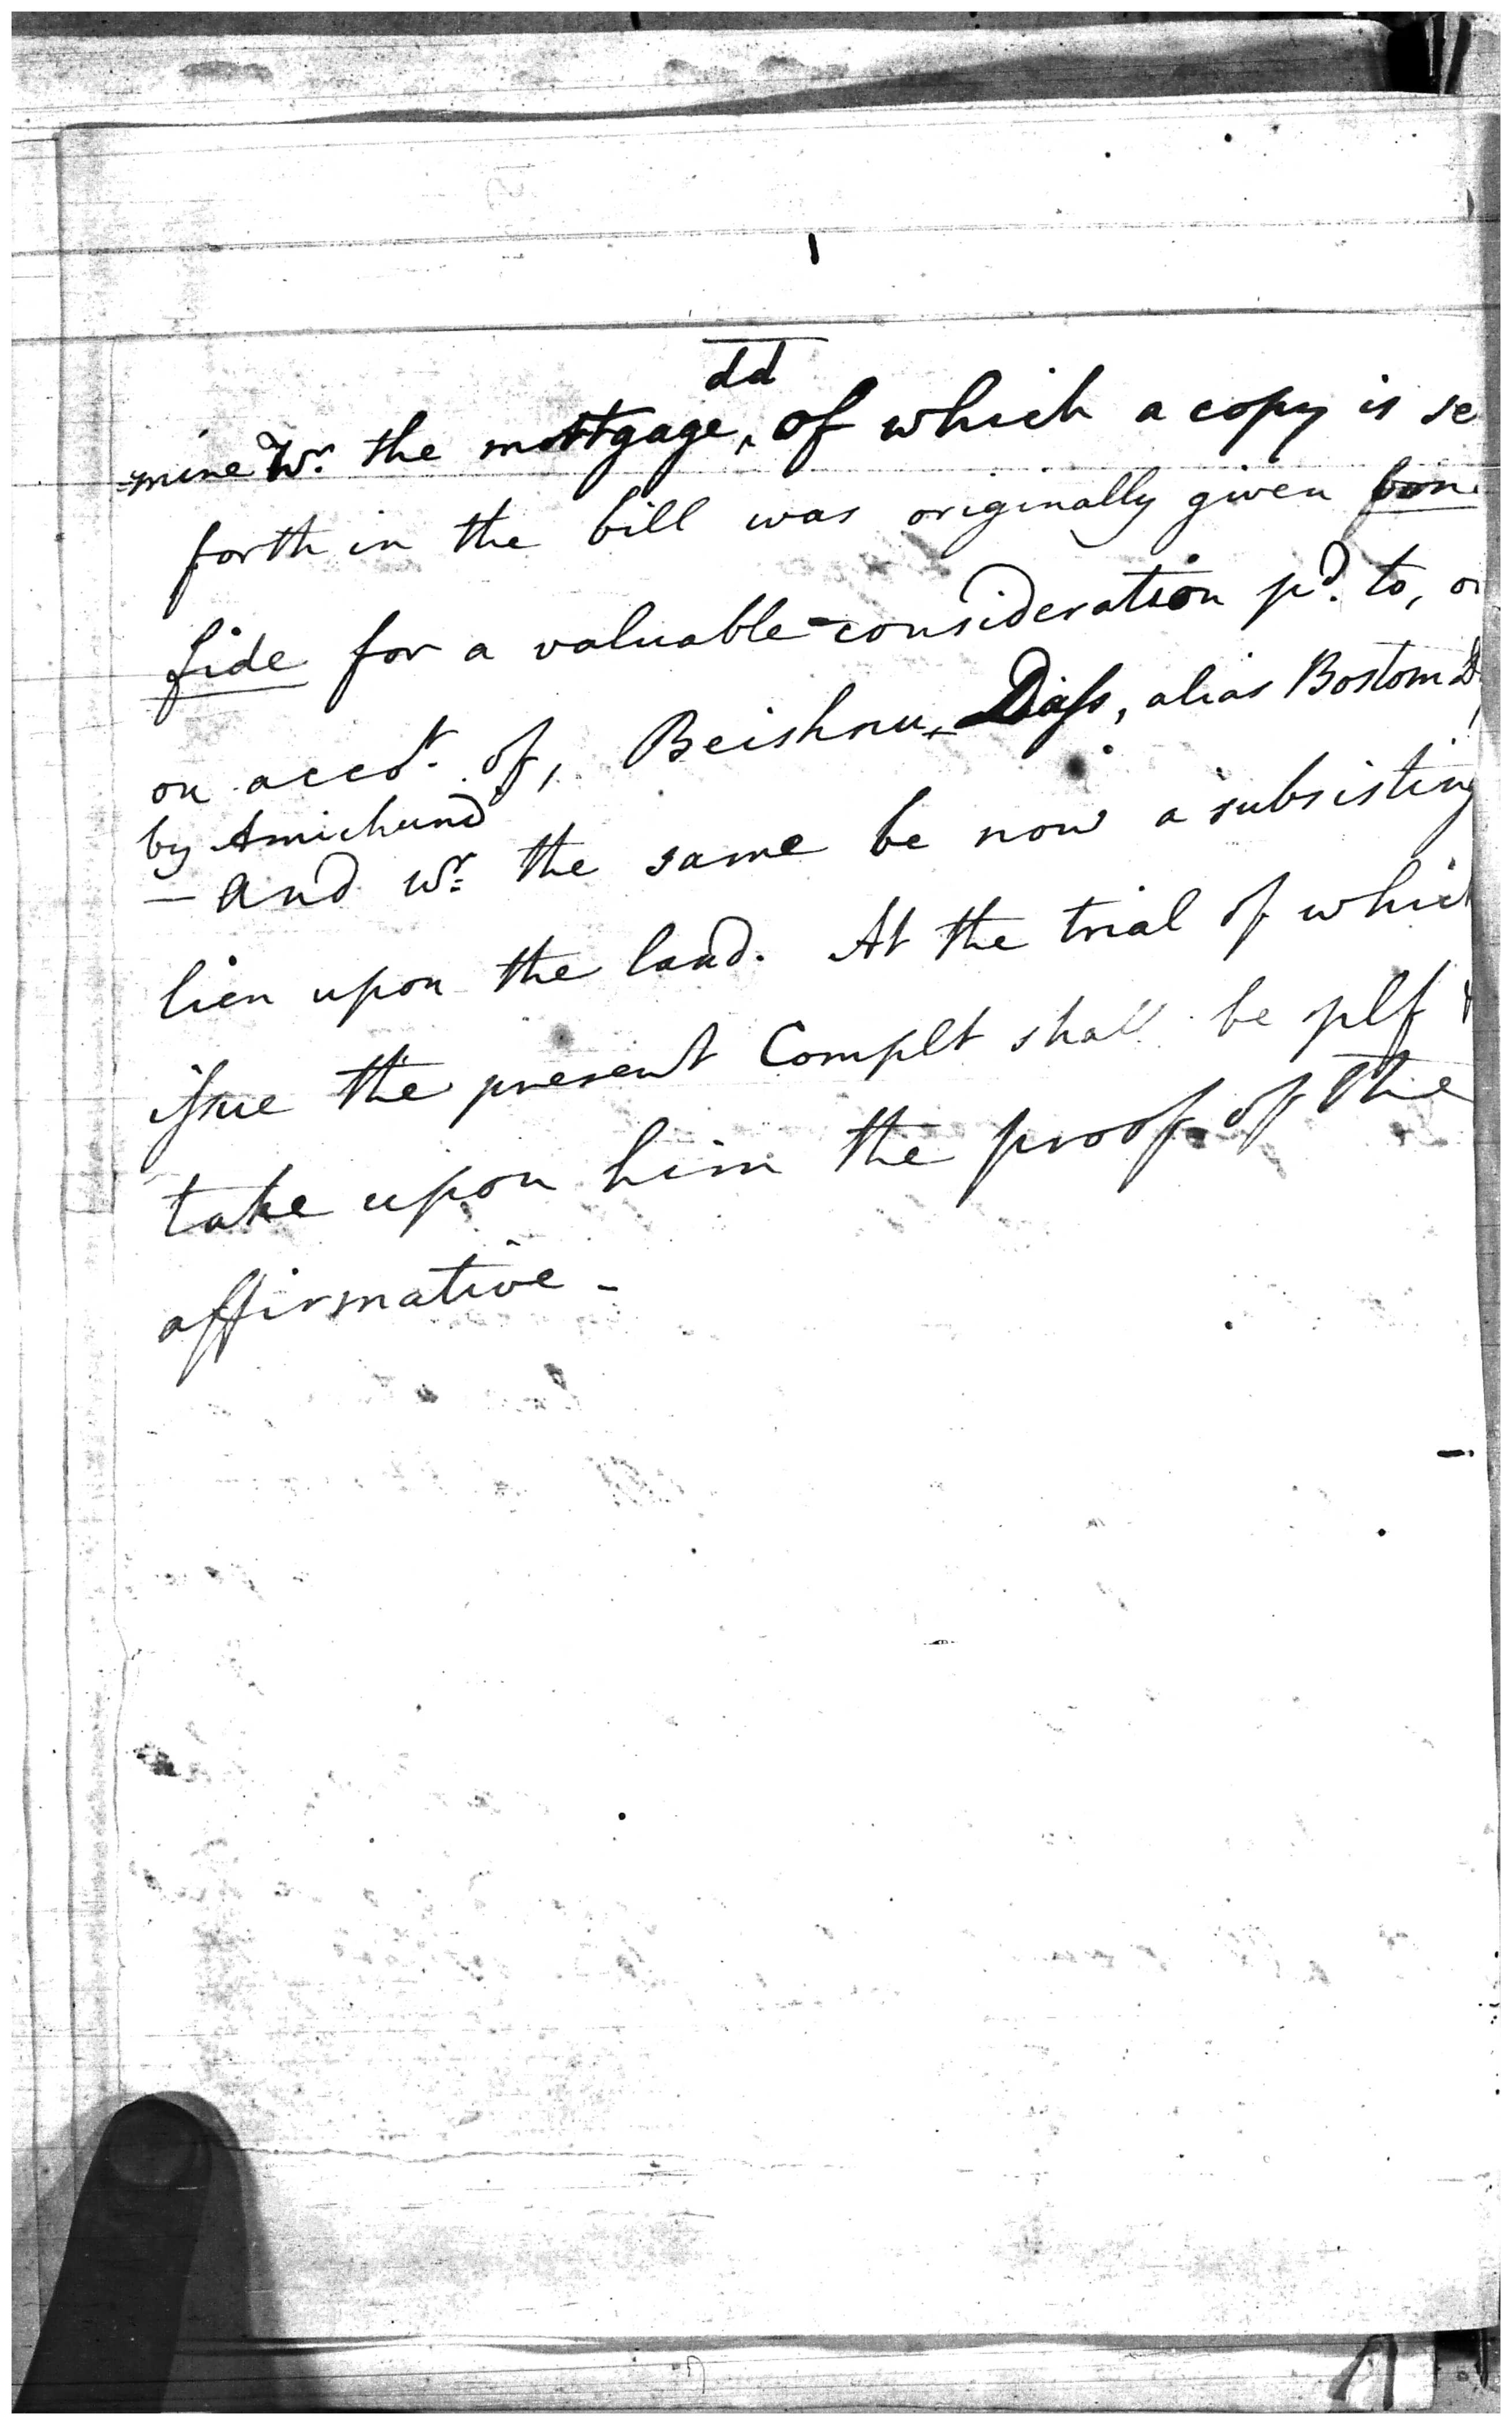 dd
=mine Wr. the mortgage, of which a copy is se
forth in the bill was originally given bon
fide for a valuable consideration pd. to, or
on acct. of, Beishnu Dass, alias Bostom D
by Amichund
— and wr. the same be now a subsisting
lien upon the land. At the trial of which
issue the present Complt shall be plf &
take upon him the proof of the
affirmative -